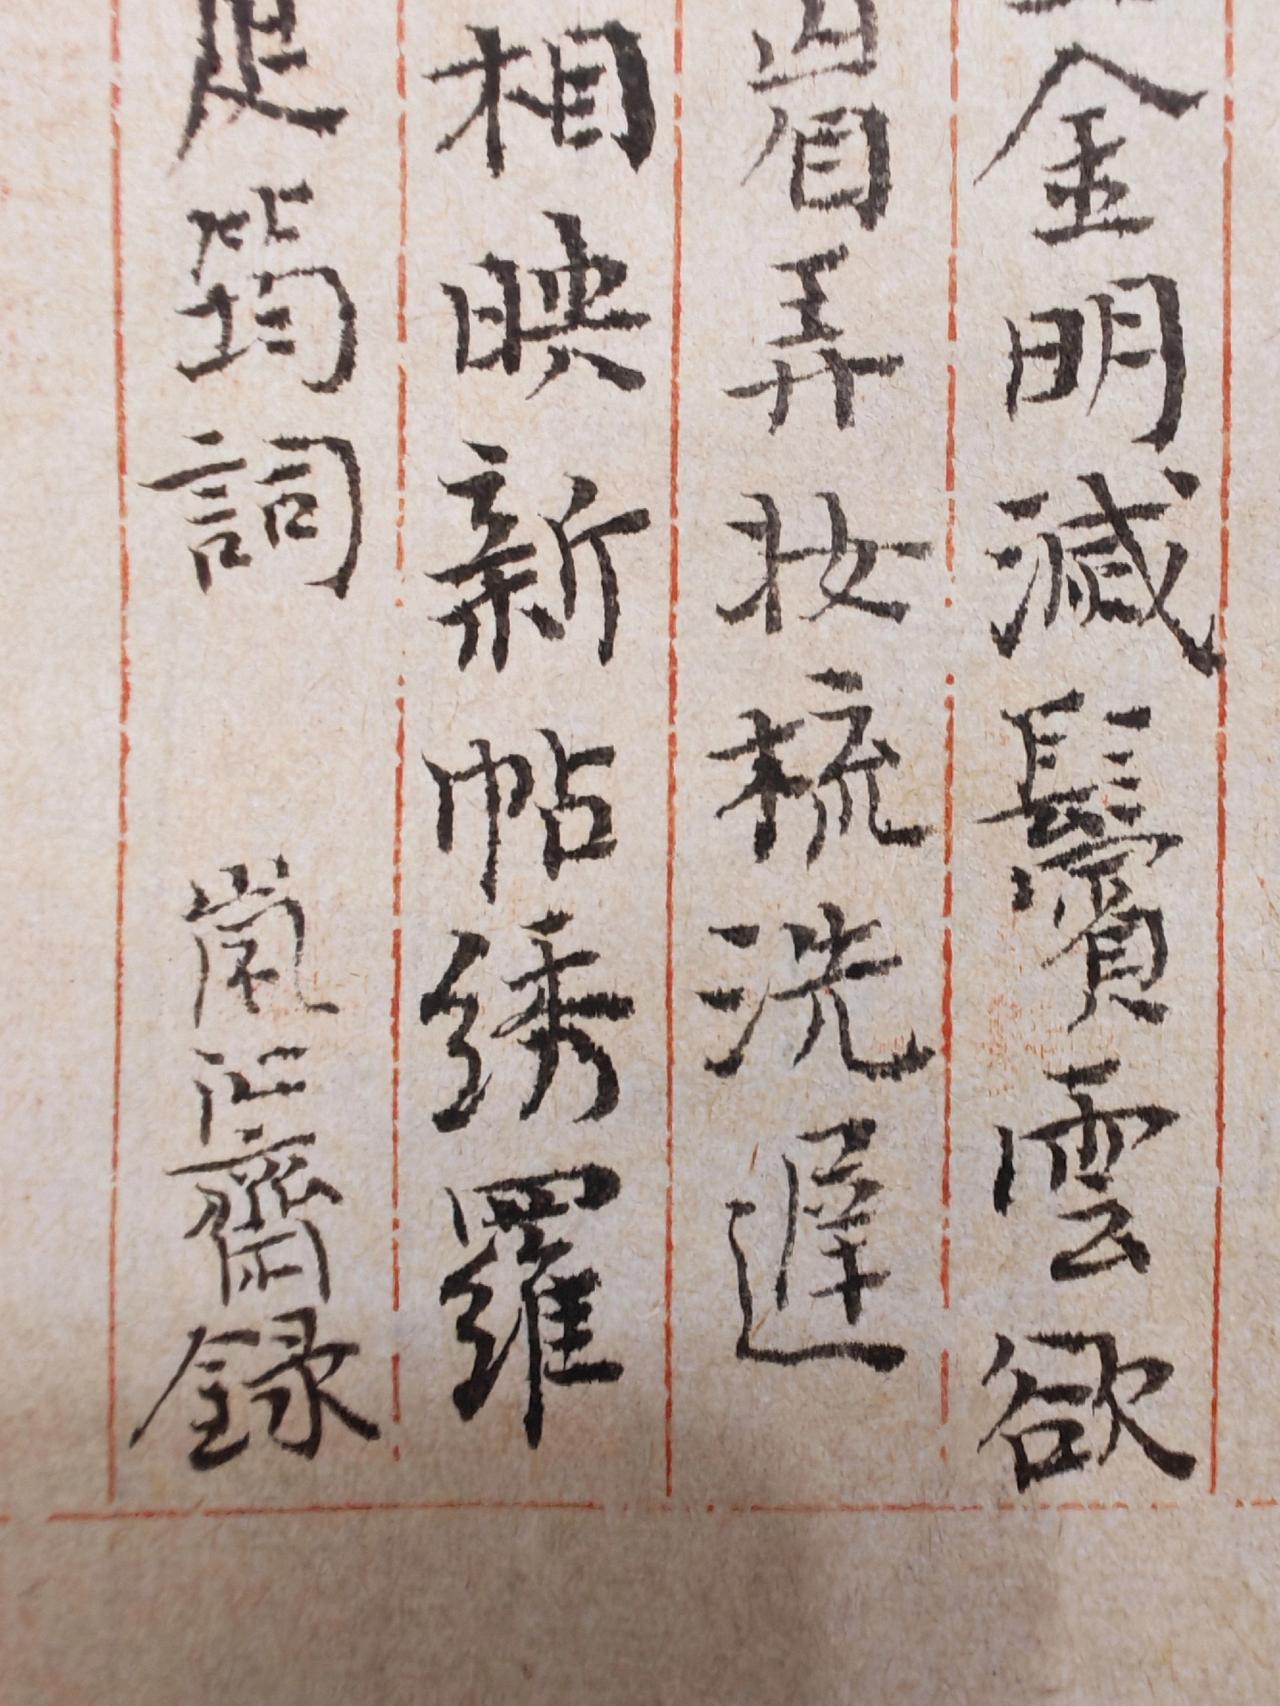 金明滅鬢雲欲
眉弄妝梳洗遲
相映新帖綉羅
筠詞 齋録